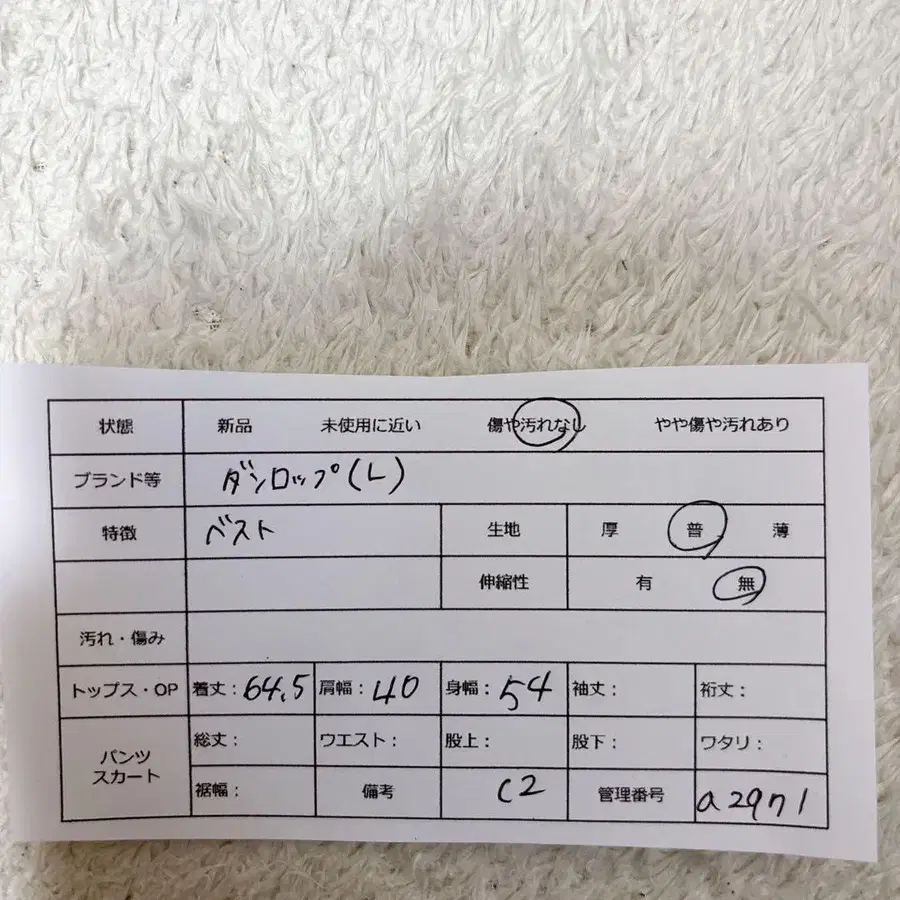 状態 新品 未使用に近い 傷や汚れなし やや傷や汚れあり
ブランド等 ダンロップ(L)
特徴 ベスト 生地 厚 普 薄
伸縮性 有 無
汚れ・傷み
トップス・OP 着丈: 64.5 肩幅: 40 身幅: 54 袖丈: 裄丈:
パンツ スカート 総丈: ウエスト: 股上: 股下: ワタリ:
裾幅: 備考 C2 管理番号 a2971